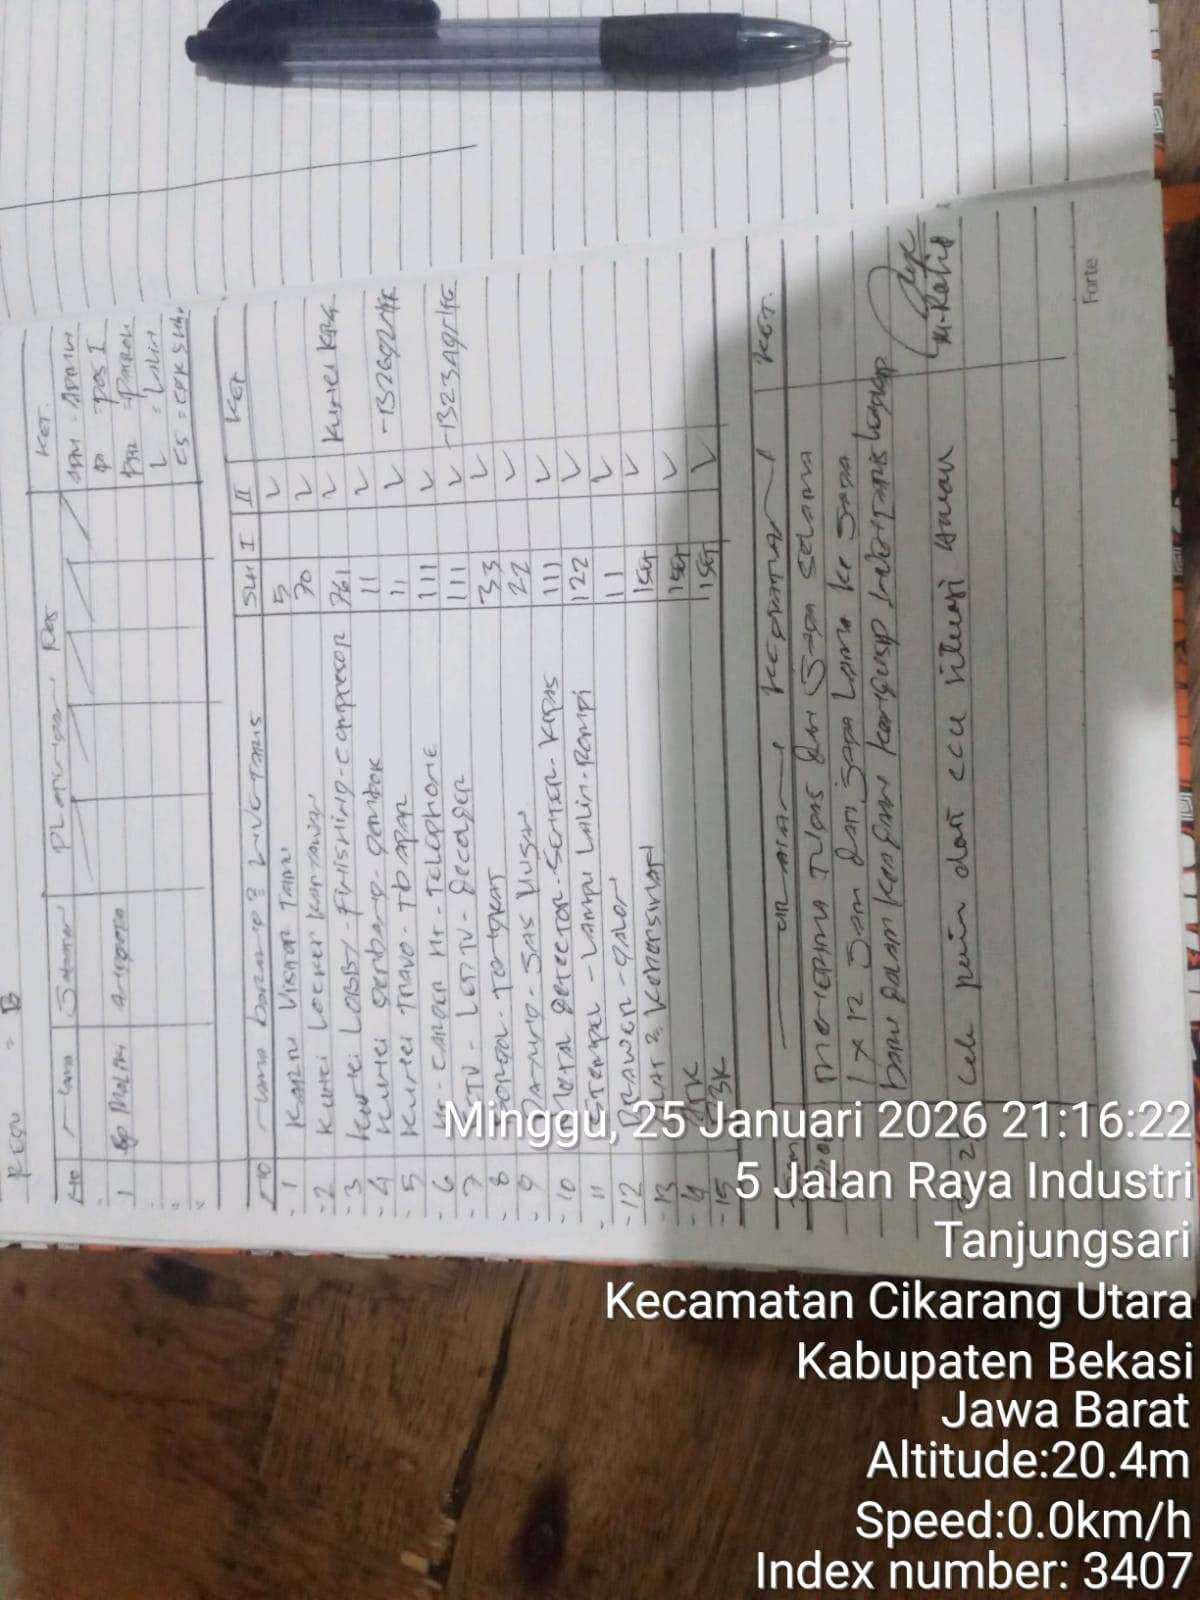 REGU = B
NO NAMA Jabatan PLANCINGAN Pos KET
1 Anggota ADM = ADMIN
P = POS I
PTR = PATROLI
L = LALIN
CS = CEK SUHU
NO NAMA barang2 INVENTARIS SLH I II KET
- 1 KARTU VISITOR TAMU 5 V
- 2 KUNCI LOCKER KARYAWAN 70 V
- 3 KUNCI LOBBY - FINISHING - COMPRESOR 761 V KUNCI KRG
- 4 KUNCI GERBANG - GEMBOK 11 V
- 5 KUNCI TRAVO - TB APAR 11 V
- 6 HT - CARGER HT - TELEPHONE 111 V
- 7 CCTV - LCD TV - DECODER 111 V
- 8 BORGOL - TONGKAT 33 V
- 9 PAYUNG - JAS HUJAN 22 V
- 10 METAL DETECTOR - SENTER - KIPAS 111 V
- 11 STEMPEL - LAMPU LALIN - ROMPI 122 V
- 12 DRAWER - GALON 11 V
- 13 ALAT2 KEBERSIHAN 1SET V
- 14 ATK 1SET V
- 15 P3K 1SET V
JAM URAIAN KEGIATAN KET.
MENERIMA TUGAS DAN JAGA SELAMA
1 x 12 JAM DARI JAGA LAMA KE JAGA
BARU DALAM KEADAAN
Cek poin dan situasi aman
M. Rafid
Forte
Minggu, 25 Januari 2026 21:16:22
5 Jalan Raya Industri
Tanjungsari
Kecamatan Cikarang Utara
Kabupaten Bekasi
Jawa Barat
Altitude:20.4m
Speed:0.0km/h
Index number: 3407